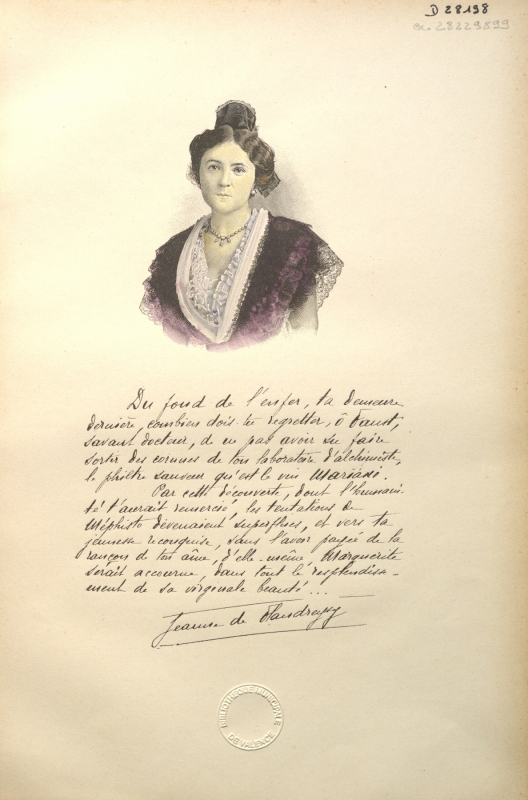 D 28198
28229899
Du fond de l'enfer, ta demeure
dernière, combien dois-tu regretter, ô Faust,
savant docteur, de ne pas avoir su faire
sortir des cornues de ton laboratoire d'alchimiste,
le philtre sauveur qu'est le vin Mariani.
Par cette découverte, dont l'humani-
té t'aurait remercié, les tentations de
Méphisto devenaient superflues, et vers ta
jeunesse reconquise, sans l'avoir payée de la
rançon de ton âme, d'elle-même Marguerite
serait accourue, dans tout le resplendisse-
ment de sa virginale beauté...
Jeanne de Flandreysy
BIBLIOTHEQUE MUNICIPALE
DE VALENCE